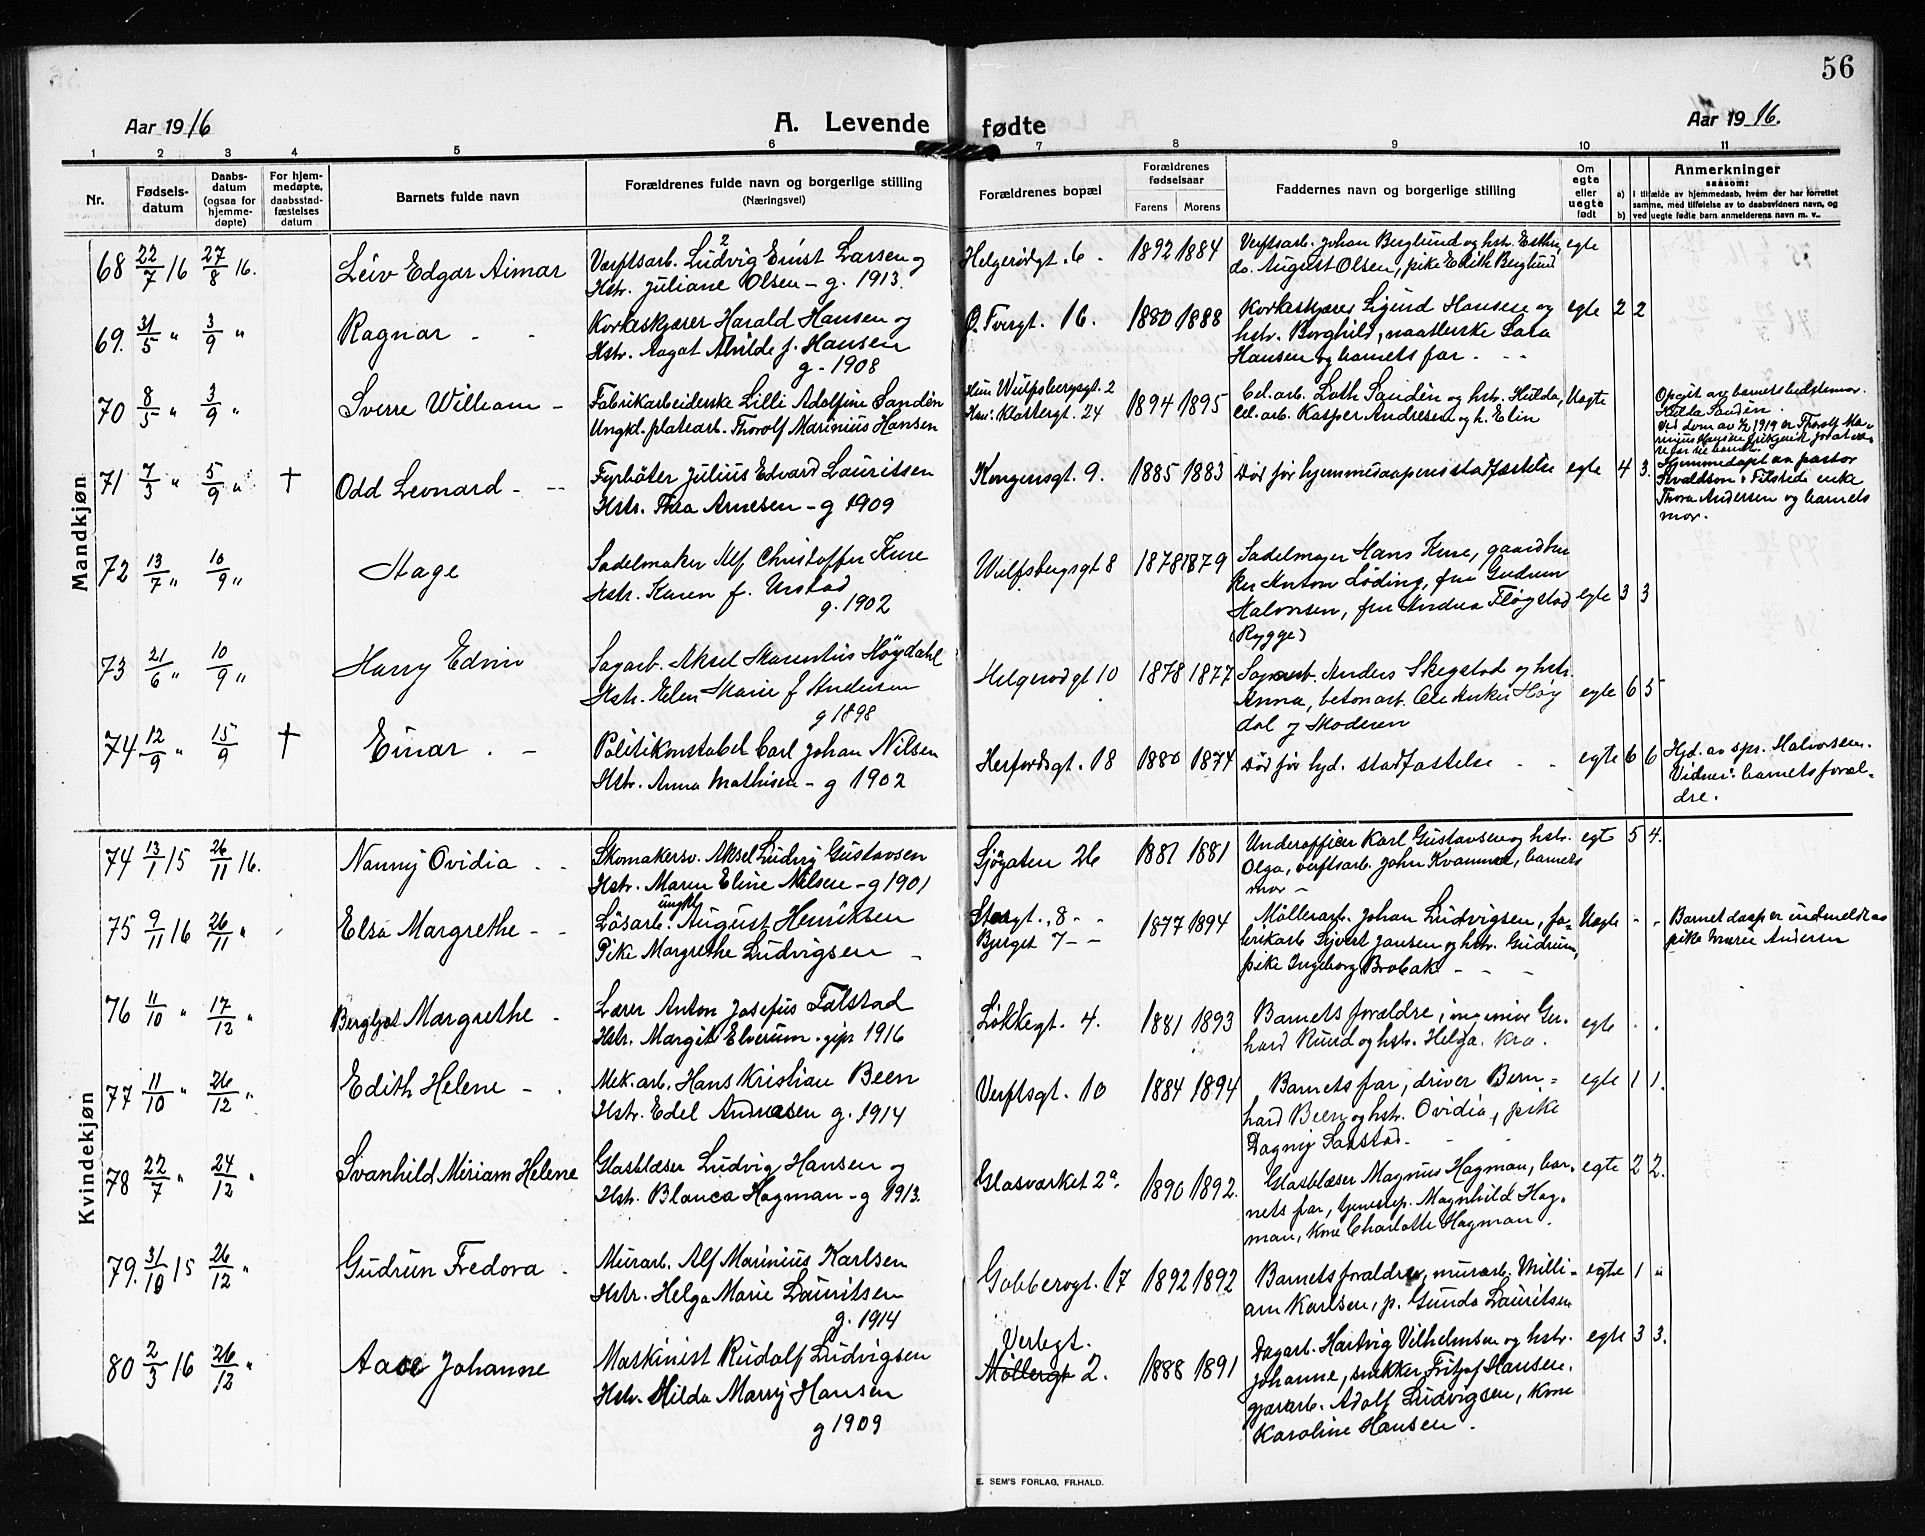 56
Aar 1916
A. Levende fødte
Aar 1916.
1 2 3 4 5 6 7 8 9 10 11
Nr.
Fødsels-
datum
Daabs-
datum
(ogsaa for
hjemme-
døpte)
For hjem-
medøpte,
daabsstad-
fæstelses
datum
Barnets fulde navn
Forældrenes fulde navn og borgerlige stilling
(Næringsvei)
Forældrenes bopæl
Forældrenes
fødselsaar
Farens Morens
Faddernes navn og borgerlige stilling
Om
egte
eller
uegte
født
a)
b)
Anmerkninger
saasom:
I tilfælde av hjemmedaab, hvem der har forrettet
samme, med tilføielse av to daabsvidners navn, og
ved uegte fødte barn anmelderens navn m. v..
Mandkjøn
68 22/7 16 27/8 16. Leiv Edgar Aimar
Verftsarb. Ludvig Ernst Larsen og
Hstr. Juliane Olsen - g. 1913.
Helgerødgt. 6. 1892 1884
Verftsarb. Johan Berglund og hstr. Esther,
do. August Olsen, pike Edith Berglund
egte
69. 31/5 " 3/9 " Ragnar - -
Korkeskjærer Harald Hansen og
Hstr. Aagot Alvilde f. Hansen
g. 1908
Ø. Tvergt. 16. 1880 1888
Korkeskjærer Sigurd Hansen og
hstr. Borghild, naatlerske Sara
Hansen og barnets far. - -
egte 2 2
70 8/5 " 3/9 " Sverre William -
Fabrikarbeiderske Lilli Adolfine Sandén
Ungkl. platearb. Thorolf Marinius Hansen
Hun Wulfsbergsgt. 2
Han: Klostergt. 24
1894 1895
Cel. arb. Loth Sandén og hstr. Hulda,
cel. arb. Kasper Andresen og h. Elin
Uegte
Opgit av barnets bedstemor
Hulda Sandén.
Ved dom av 1919 er Thorolf Ma-
rinius Hansen
71 7/3 " 5/9 " † Odd Leonard - --
Fyrbøter Julius Edvard Lauritsen
Hstr. Thea Arnesen - g 1909
Kongensgt. 9. 1885 1883
Død før hjemmedaapens stadfæstelse egte 4 3.
Hjemmedøpt av pastor
Thora Andersen og barnets
mor.
72 13/7 " 10/9 " Hage
Sadelmaker Alf Christoffer Kure
Hstr. Karen f. Urstad
g. 1902
Wulfsbergsgt 8 1878 1879
Sadelmager Hans Kure, gaardbru
ker Anton Løding, fru Gudrun
Halvorsen, fru Andrea Fløgstad
(Rygge)
egte 3 3
73 21/6 " 10/9 " Harry Edvin
Sagarb. Aksel Marentius Høydahl
Hstr. Elen Marie f Andersen
g 1898
Helgerødgt 10 1878 1877
Sagarb. Anders Skegstad og hstr.
Anna, betonarb. Ole Anker Høy
dal og Moderen
egte 6 5
74 12/9 " 15/9 † Einar . -
Politikonstabel Carl Johan Nilsen
Hstr. Anna Mathisen - g 1902
Herfordsgt. 18 1880 1874
Død før hjd. stadfæstelse - - egte 6 6
Hjd. av spr. Halvorsen.
Vidner: barnets foræl-
dre.
Kvindekjøn
74 13/1 15 26/11 16. Nanny Ovidia . .
Skomakersv. Aksel Ludvig Gustavsen
Hstr. Maren Eline Nilsen - g 1901
Sjøgaten 26 1881 1881
Underofficer Karl Gustavsen og hstr.
Olga, verftsarb. John Kvammen, barnets
mor -
egt 5 4.
75 9/11 16 26/11 " Elsa Margrethe - -
ungkl
Løsarb. August Henriksen
Pike Margrethe Ludvigsen -
Storgt. 8 - -
Byrgt 7 - -
1877 1894
Møllerarb. Johan Ludvigsen, fa-
brikarb Sjvert Jansen og hstr. Gudrun,
pike Ingeborg Brobak - - -
Uegte - -
Barnet daap er indmeldt av
pike Marie Andersen
76 11/10 " 17/12 " Bergljot Margrethe -
Lærer Anton Josefus Falstad
Hstr. Margit Elverum - gift 1916
Løkkegt. 4. 1881 1893
Barnets forældre, ingeniør Ger-
hard Ruud og hstr. Helga. Kra.
egte . .
77 11/10 " 26/12 " Edith Helene - .
Mek. arb. Hans Kristian Been
Hstr. Edel Andreasen g. 1914
Verftsgt. 10 1884 1894
Barnets far, driver Bern-
hard Been og hstr. Ovidia, pike
Dagny Saastad.
egte 1 1.
78 22/7 " 24/12 " Svanhild Miriam Helene
Glasblæser Ludvig Hansen og
Hstr. Blanca Hagman - g 1913.
Glasværket 2a. 1890 1892.
Glasblæser Magnus Hagman, bar-
nets far, tjenestep. Magnhild Hag-
man, kone Charlotte Hagman.
egte 2 2.
79. 31/10 15 26/12 " Gudrun Fredova .
Murarb. Alf Marinius Karlsen
Hstr. Helga Marie Lauritsen
g. 1914
Gabbersgt. 17 1892 1892
Barnets forældre, murarb. Willi-
am Karlsen, p. Gunda Lauritsen
egte 1 "
80 2/3 16 26/12 " Aase Johanne
Maskinist Rudolf Ludvigsen
Hstr. Hilda Marry Hansen
g 1909
Verlegt.
Møllergt 2. 1888 1891
Dagarb. Hartvig Vilhelmsen og hstr.
Johanne, snekker Fritjof Hansen.
garverarb. Adolf Ludvigsen, kone
Karoline Hansen.
egte 3 3.
E. SEM'S FORLAG, FR.HALD.